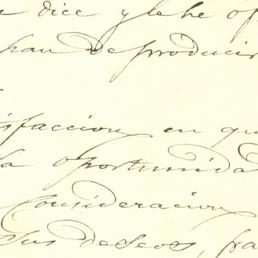 e dice y le he of
han de producir
isfaccion en qu
la oportunida
consideracion
sus deseos, pa